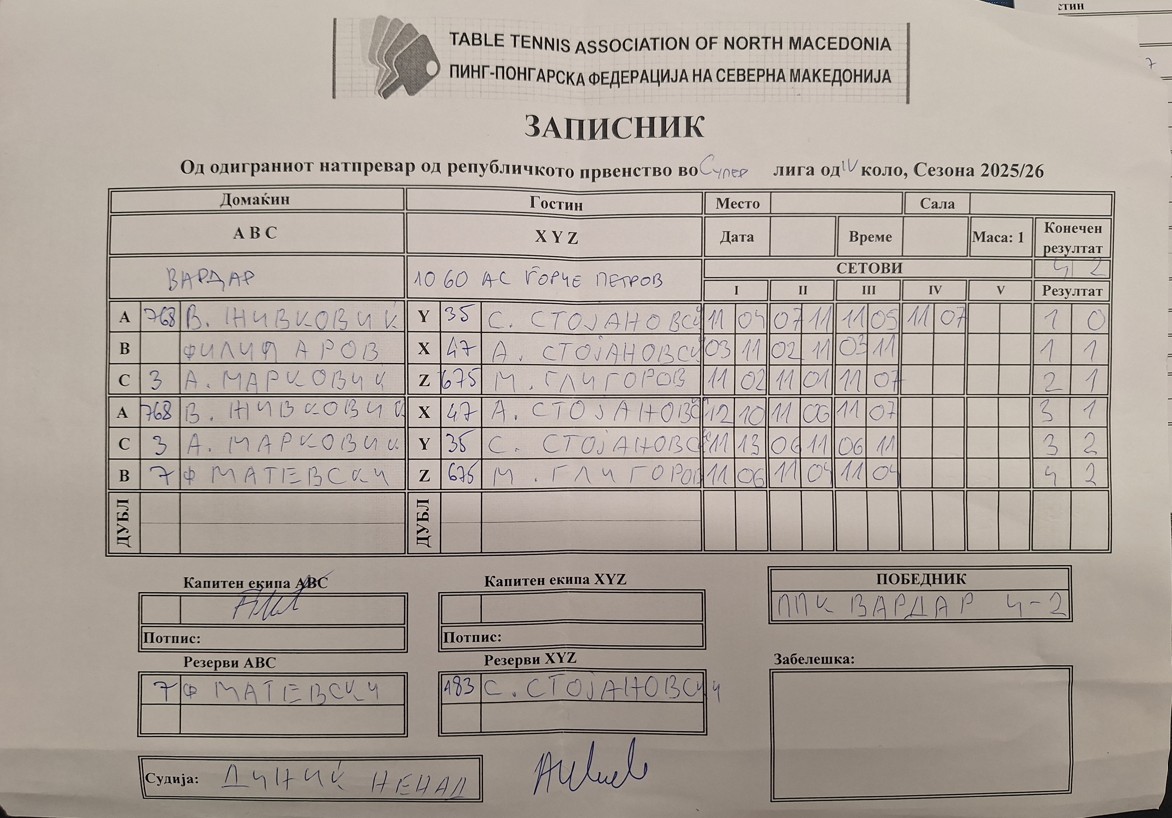 стин
7
TABLE TENNIS ASSOCIATION OF NORTH MACEDONIA
ПИНГ-ПОНГАРСКА ФЕДЕРАЦИЈА НА СЕВЕРНА МАКЕДОНИЈА
ЗАПИСНИК
Од одиграниот натпревар од републичкото првенство во Супер лига од IV коло, Сезона 2025/26
Домаќин Гостин Место Сала
A B C X Y Z Дата Време Маса: 1 Конечен резултат
СЕТОВИ 4 2
ВАРДАР 1060 АС ЃОРЧЕ ПЕТРОВ I II III IV V Резултат
A 768 В. ЖИВКОВИЌ Y 35 С. СТОЈАНОВСКИ 11 04 07 11 11 05 11 07 1 0
B ФИЛИП АРОВ X 47 А. СТОЈАНОВСКИ 03 11 02 11 03 11 1 1
C 3 А. МАРКОВИЌ Z 675 М. ГЛИГОРОВ 11 02 11 01 11 07 2 1
A 768 В. ЖИВКОВИЌ X 47 А. СТОЈАНОВС 12 10 11 06 11 07 3 1
C 3 А. МАРКОВИЌ Y 35 С. СТОЈАНОВС 11 13 06 11 06 11 3 2
B 7 Ф МАТЕВСКИ Z 675 М. ГЛИГОРОВ 11 06 11 04 11 04 4 2
ДУБЛ ДУБЛ
Капитен екипа ABC Капитен екипа XYZ ПОБЕДНИК
ППК ВАРДАР 4-2
Потпис: Потпис:
Резерви ABC Резерви XYZ Забелешка:
7 Ф МАТЕВСКИ 483 С. СТОЈАНОВСКИ
Судија: ДИНИЌ НЕНАД